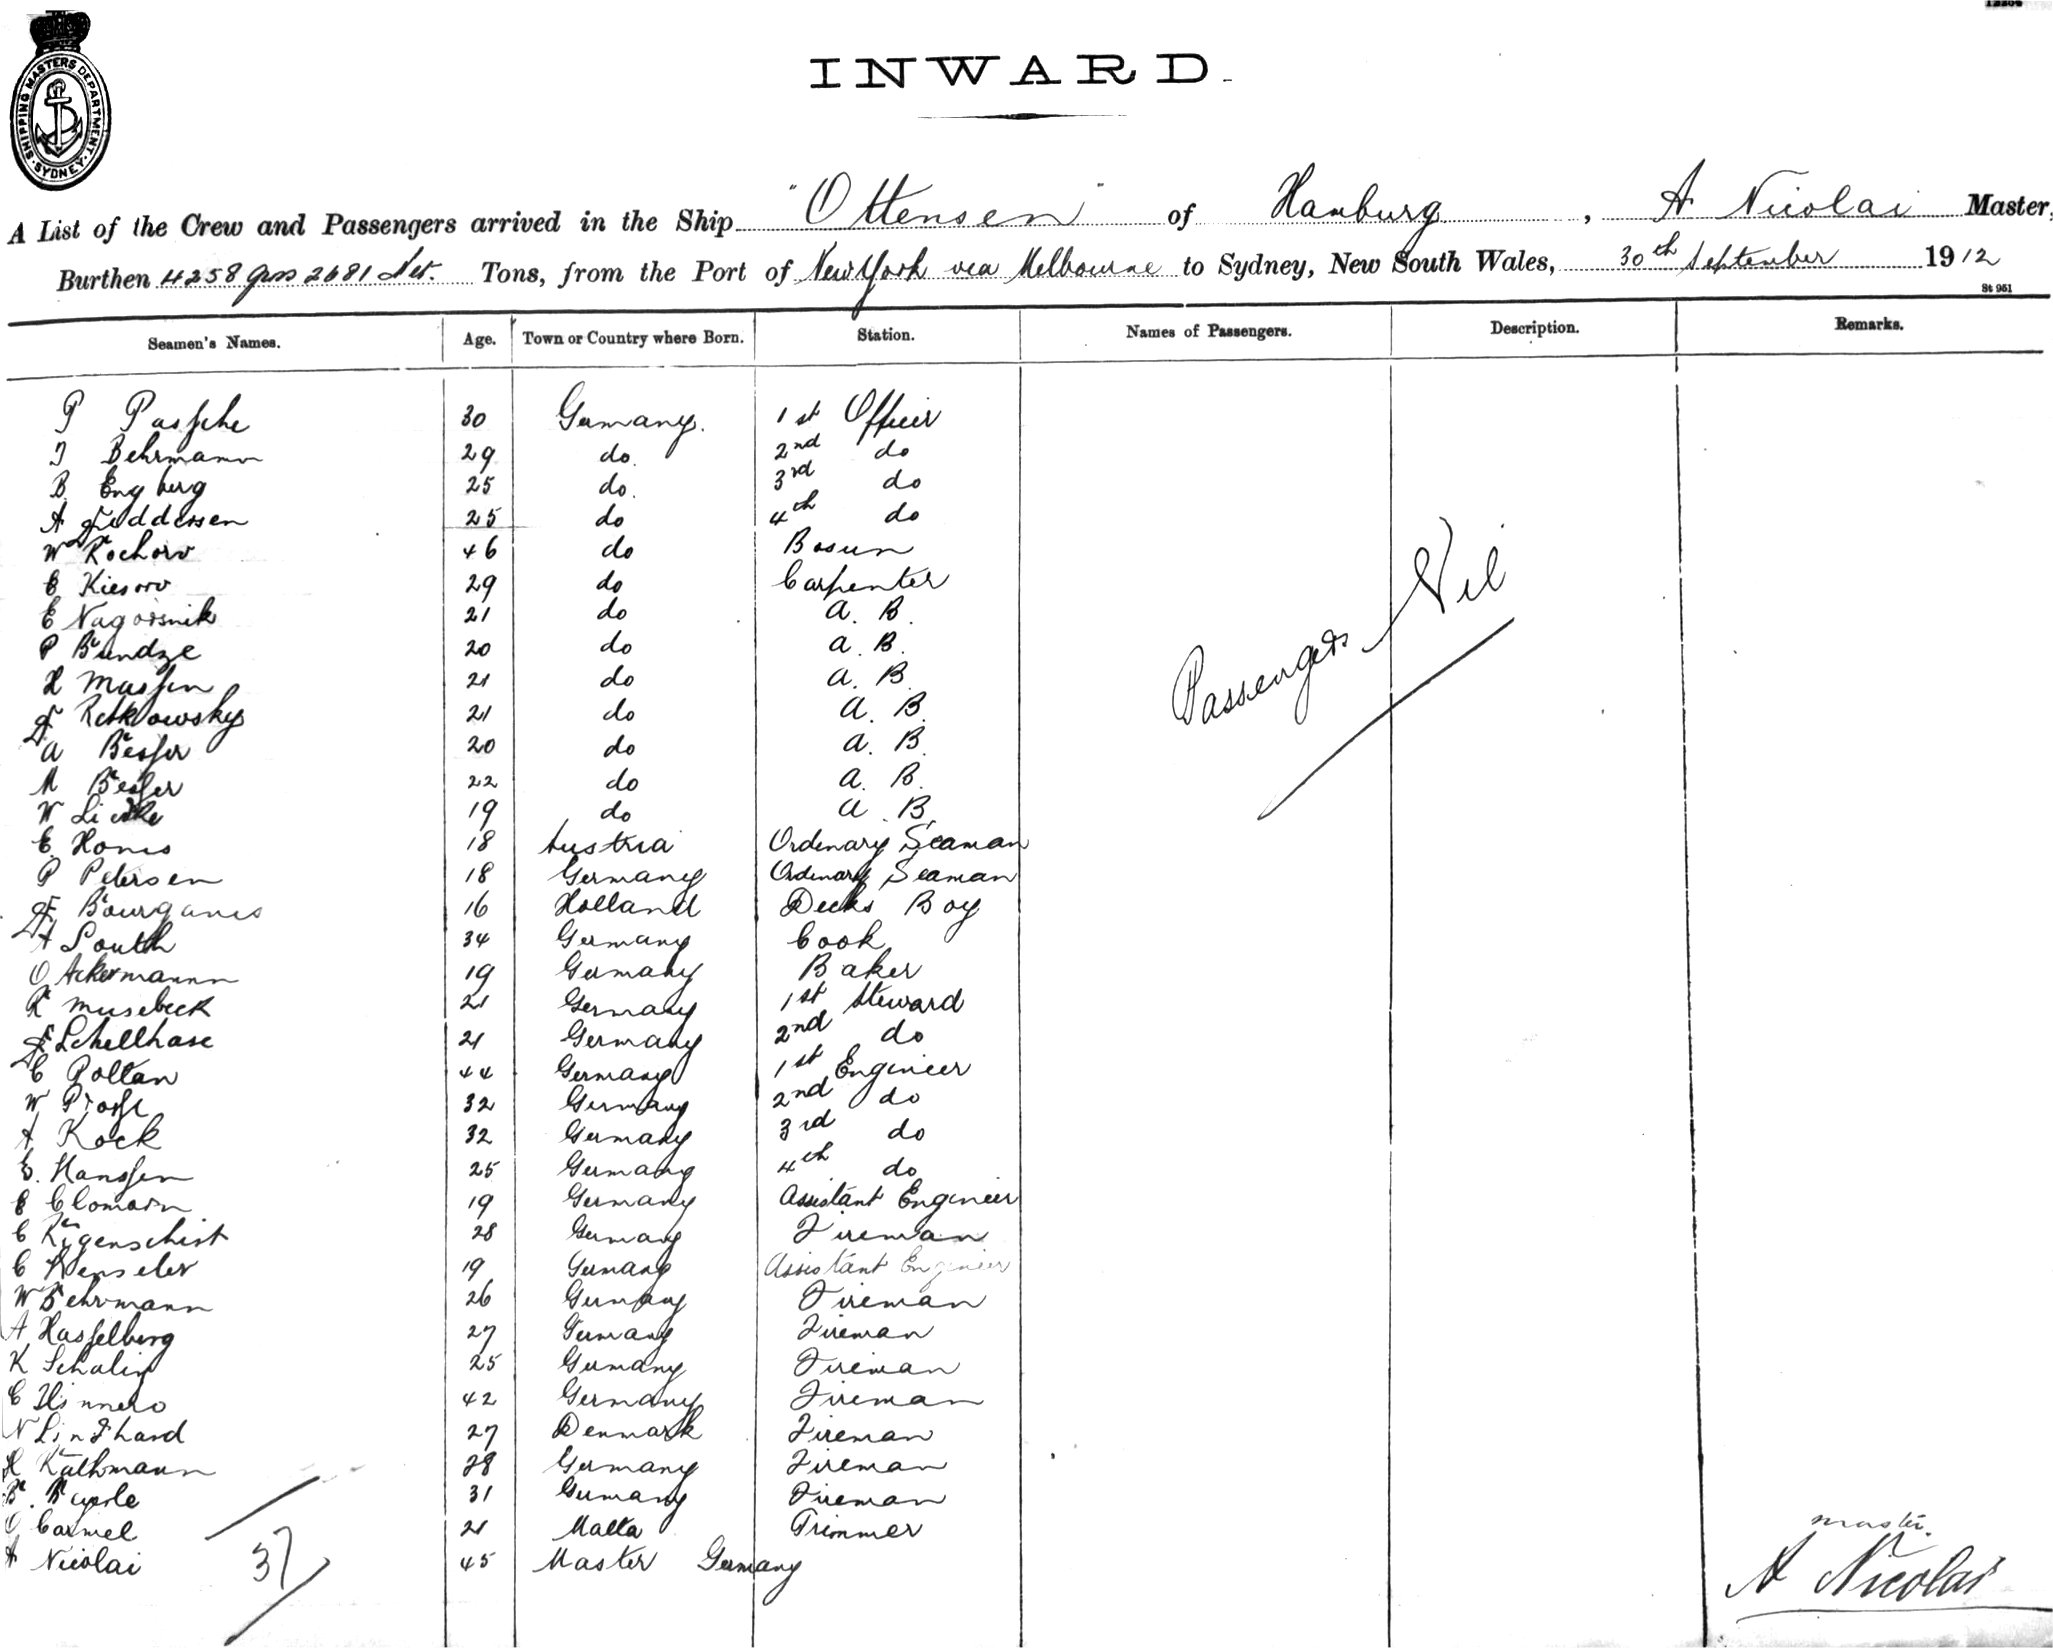 SHIPPING MASTERS DEPARTMENT. SYDNEY.
INWARD.
A List of the Crew and Passengers arrived in the Ship "Ottensen" of Hamburg, A Nicolai Master,
Burthen 4258 gross 2681 Net. Tons, from the Port of New York via Melbourne to Sydney, New South Wales, 30th September 1912
St 951
Seamen's Names. Age. Town or Country where Born. Station. Names of Passengers. Description. Remarks.
P Passche 30 Germany. 1st Officer
J Behrmann 29 do 2nd do
B Engberg 25 do. 3rd do
A Feddersen 25 do 4th do
W Rochow 46 do Bosun
E Kiesow 29 do Carpenter
E Nagorsnik 21 do A. B.
P Bundze 20 do A. B.
H Massen 21 do A. B.
F Retkowsky 21 do A. B.
A Besser 20 do A. B.
M Besser 22 do A. B.
W 19 do A. B.
E 18 Austria Ordinary Seaman
P Petersen 18 Germany Ordinary Seaman
F 16 Holland Decks Boy
A 34 Germany Cook
O Ackermann 19 Germany Baker
R Musebeck 21 Germany 1st Steward
F Schellhase 21 Germany 2nd do
C Poltan 44 Germany 1st Engineer
W 32 Germany 2nd do
A Kock 32 Germany 3rd do
E. Hanssen 25 Germany 4th do
19 Germany Assistant Engineer
C 28 Germany Fireman
C 19 Germany Assistant Engineer
W Behrmann 26 Germany Fireman
A Hasselberg 27 Germany Fireman
K Schalin 25 Germany Fireman
C 42 Germany Fireman
N 27 Denmark Fireman
H Kathmann 28 Germany Fireman
31 Germany Fireman
Carmel 21 Malta Trimmer
A Nicolai 45 Master Germany
37
Passengers Nil
master.
A Nicolai